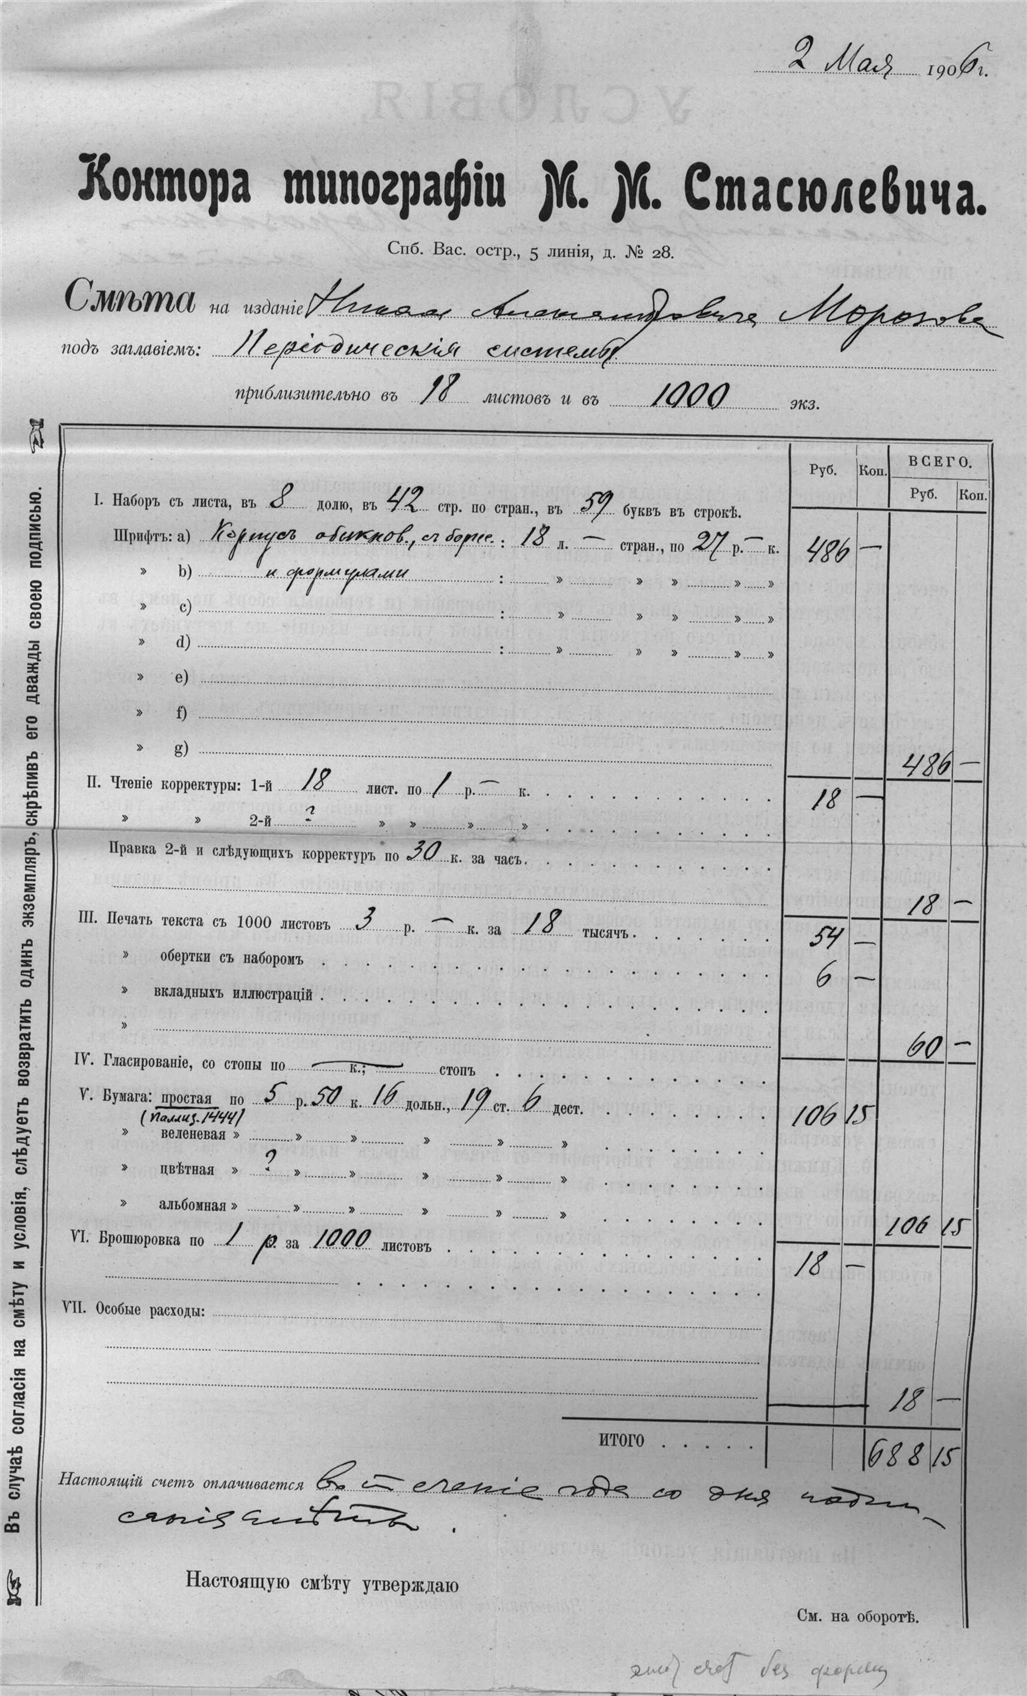 2 Мая 1906 г.
Контора типографіи М. М. Стасюлевича.
Спб. Вас. остр., 5 линія, д. № 28.
Смѣта на изданіе Николая Александровича Морозова
подъ заглавіемъ: Періодическія системы
приблизительно въ 18 листовъ и въ 1000 экз.
Руб. Коп. ВСЕГО.
Руб. Коп.
I. Наборъ съ листа, въ 8 долю, въ 42 стр. по стран., въ 59 буквъ въ строкѣ.
Шрифтъ: a) Корпусъ обикнов., : 18 л. — стран., по 27 р. — к. 486 —
» b) и формулами : » » » » »
» c) : » » » » »
» d) : » » » » »
» e)
» f)
» g) 486 —
II. Чтеніе корректуры: 1-й 18 лист. по 1 р. — к. 18 —
» » 2-й ? » » » »
Правка 2-й и слѣдующихъ корректуръ по 30 к. за часъ.
18 —
III. Печать текста съ 1000 листовъ 3 р. — к. за 18 тысячъ 54 —
» обертки съ наборомъ 6 —
» вкладныхъ иллюстрацій
» 60 —
IV. Гласированіе, со стопы по — к.; — стопъ
V. Бумага: простая по 5 р. 50 к. 16 дольн., 19 ст. 6 дест. 106 15
» веленевая » » » » » »
» цвѣтная » ? » » » » »
» альбомная » » » » » » 106 15
VI. Брошюровка по 1 р. за 1000 листовъ 18 —
VII. Особые расходы:
18 —
ИТОГО 688 15
Настоящій счетъ оплачивается въ теченіе года со дня подпи-
санія смѣты.
Настоящую смѣту утверждаю
См. на оборотѣ.
счет без
Въ случаѣ согласія на смѣту и условія, слѣдуетъ возвратить одинъ экземпляръ, скрѣпивъ его дважды своею подписью.